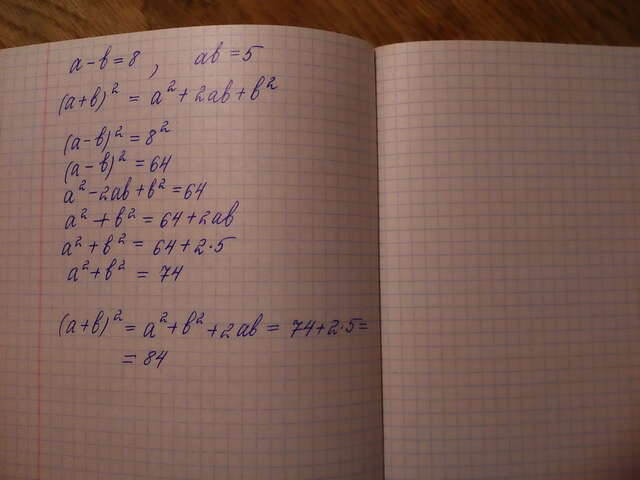 a-b=8, ab=5
(a+b)² = a²+2ab+b²
(a-b)²=8²
(a-b)²=64
a²-2ab+b²=64
a²+b²=64+2ab
a²+b²=64+2·5
a²+b²=74
(a+b)²=a²+b²+2ab=74+2·5=
=84